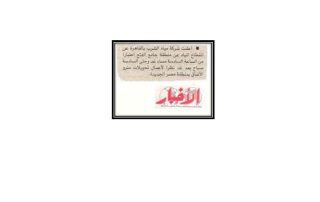 ■ أعلنت شركة مياه الشرب بالقاهرة عن
انقطاع المياه عن منطقة جامع الفتح اعتبارا
من الساعة السادسة مساء غد وحتى السادسة
صباح بعد غد نظرا لأعمال تحويلات مترو
الأنفاق بمنطقة مصر الجديدة.
الأخبار